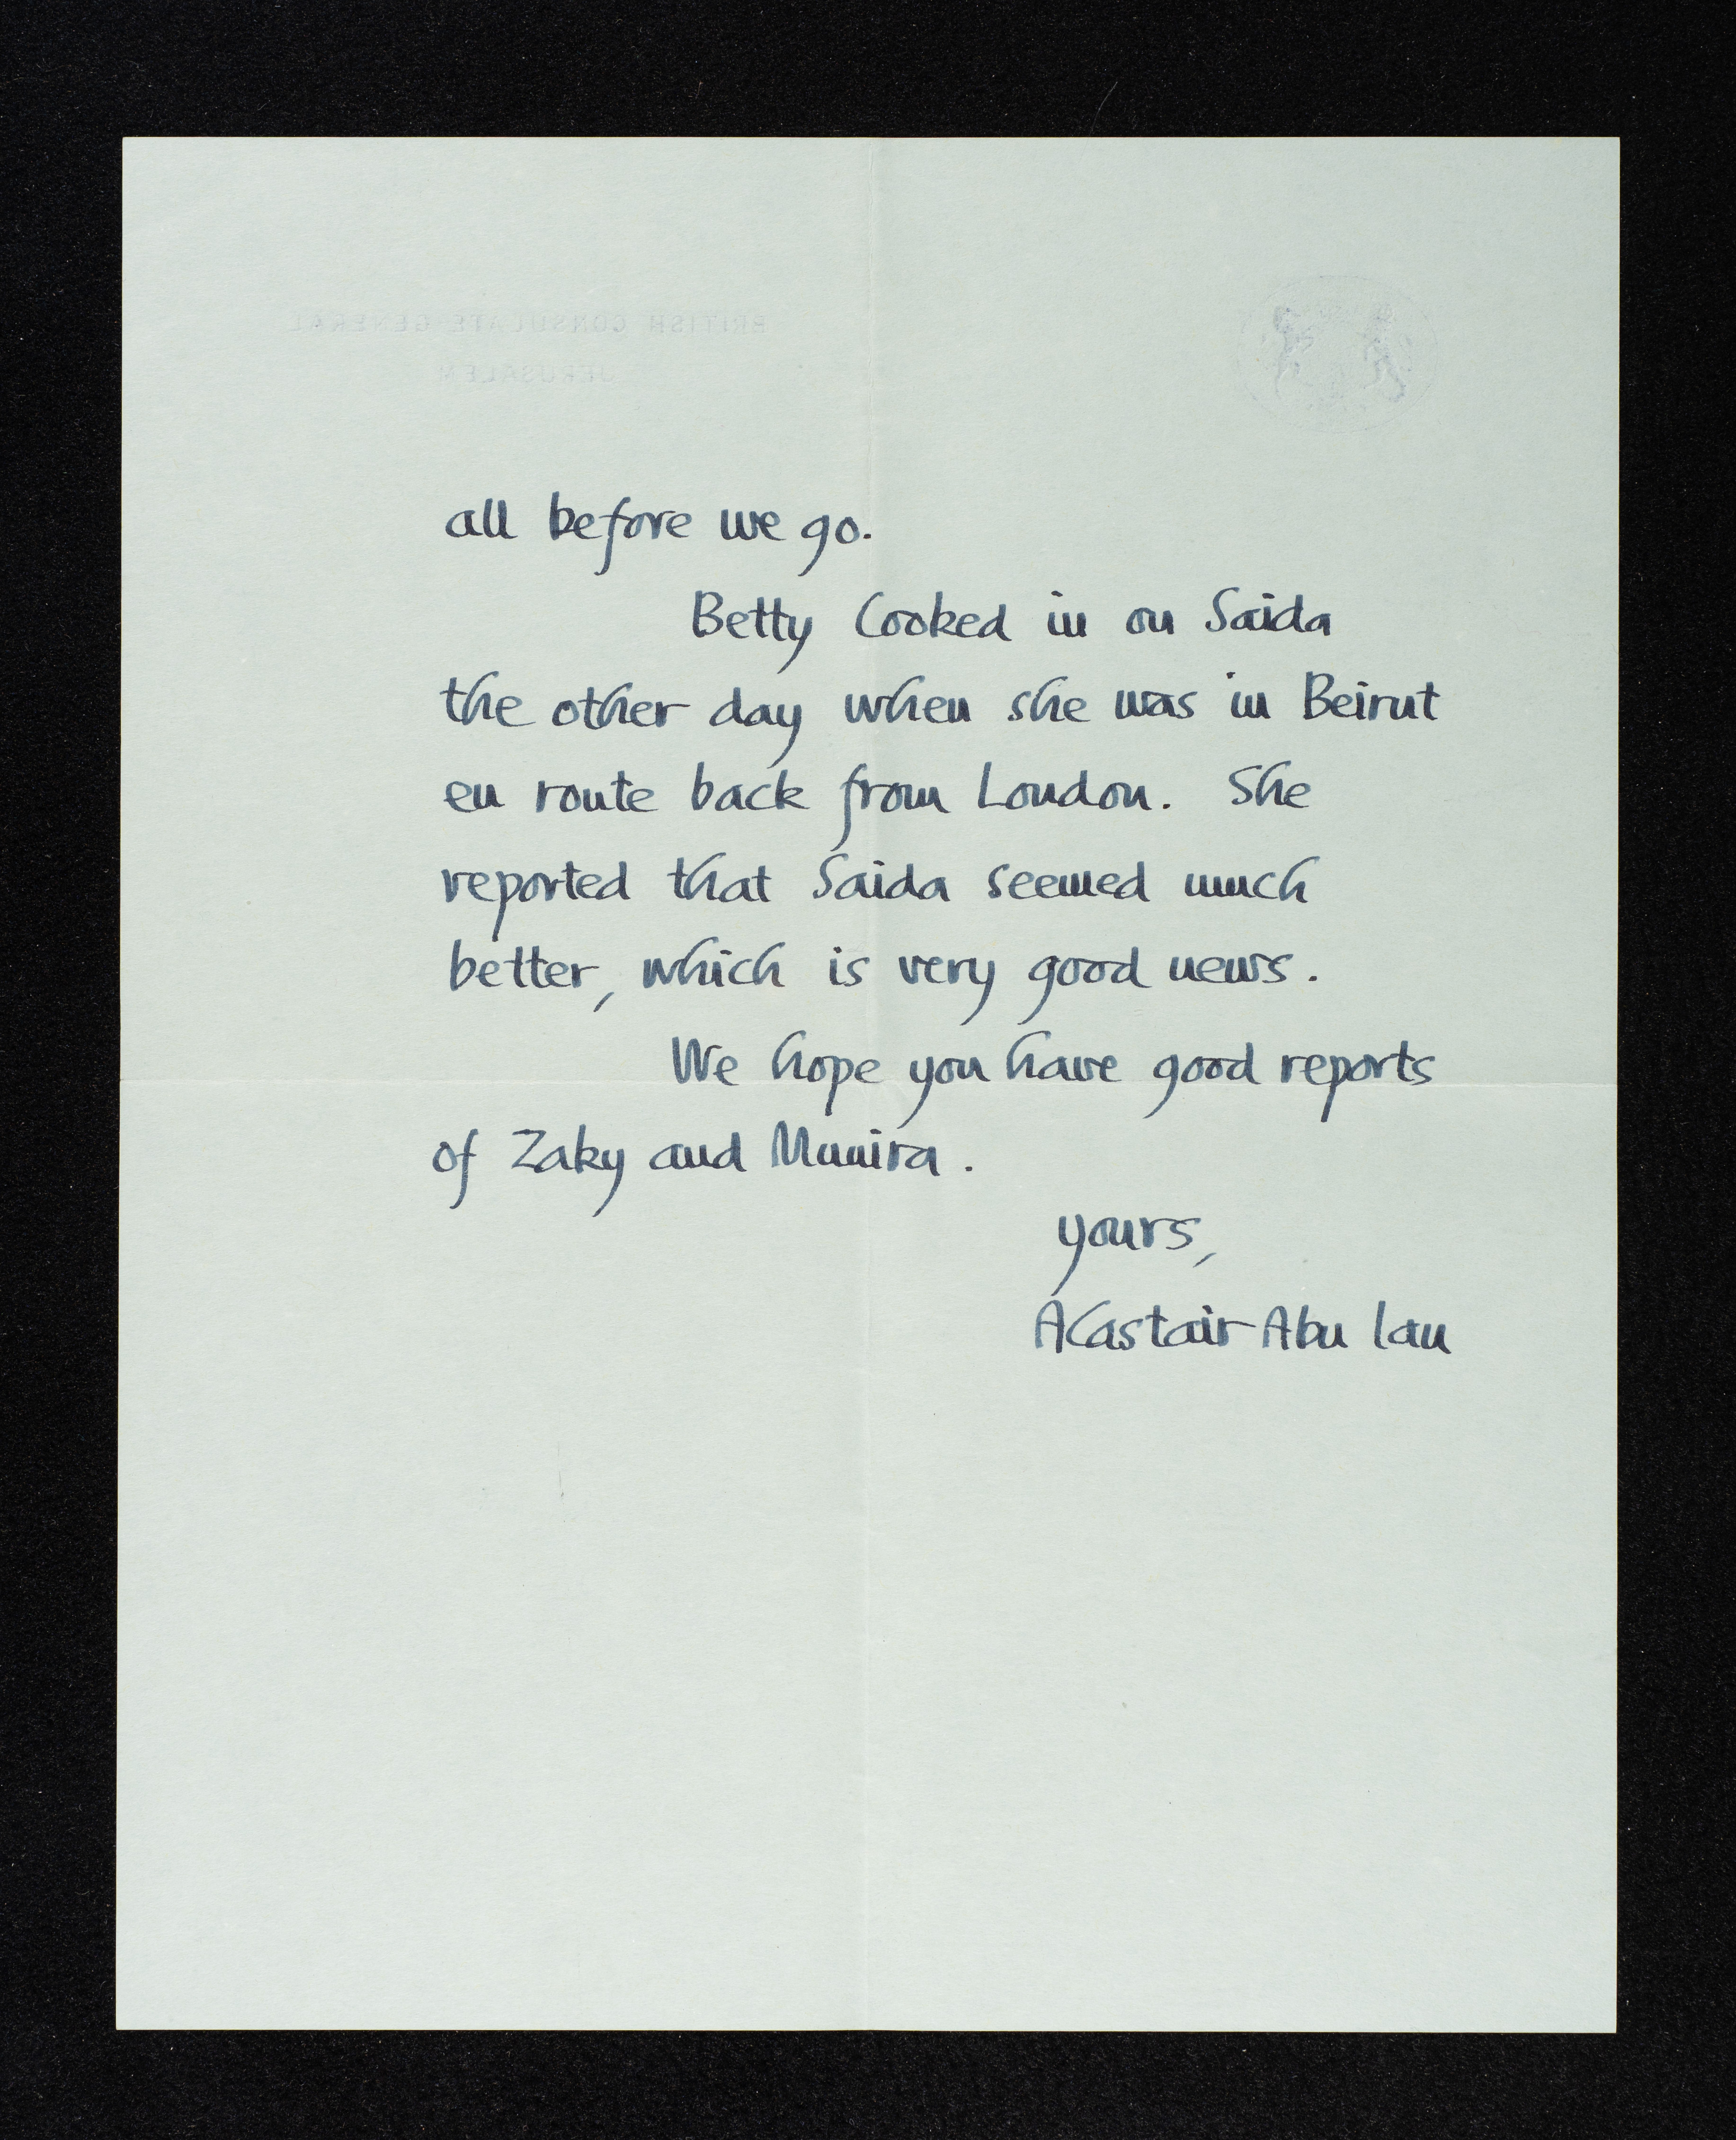 BRITISH CONSULATE-GENERAL
JERUSALEM
all before we go.
Betty looked in on Saida
the other day when she was in Beirut
en route back from London. She
reported that Saida seemed much
better, which is very good news.
We hope you have good reports
of Zaky and Munira.
yours,
Alastair Abu Ian